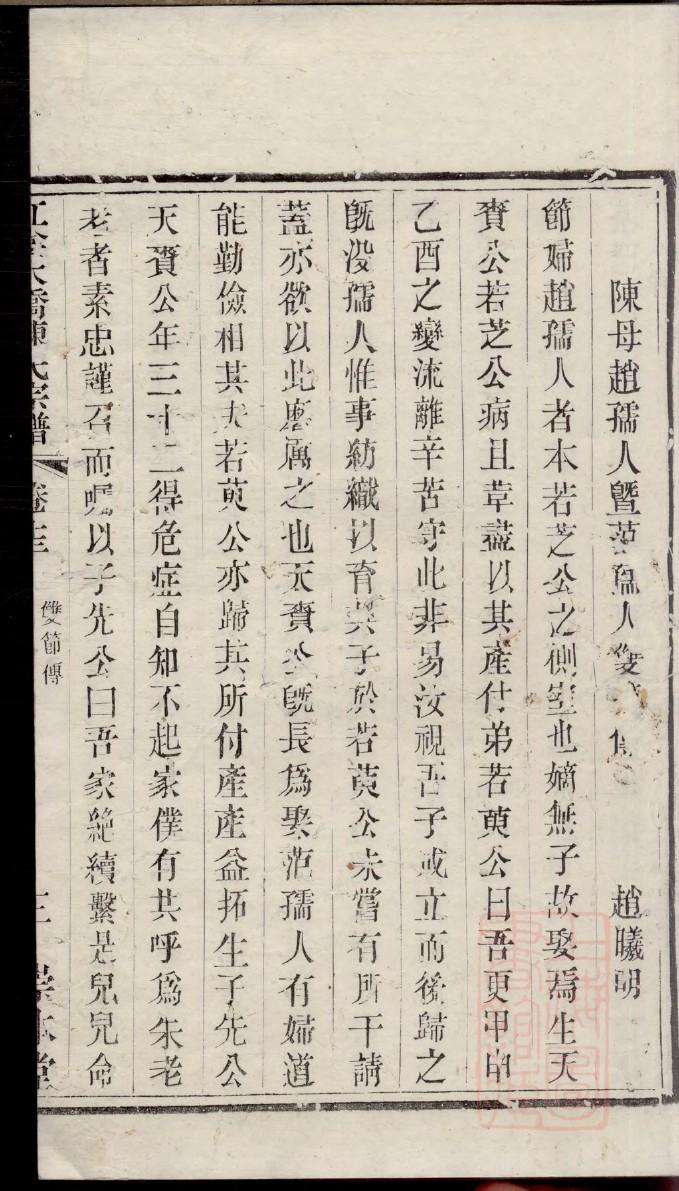 陳母趙孺人曁范孺人雙節傳 趙曦明
節婦趙孺人者本若芝公之側室也嫡無子故娶焉生天
賚公若芝公病且革盡以其產付弟若萸公曰吾更甲申
乙酉之變流離辛苦守此非易汝視吾子成立而後歸之
旣沒孺人惟事紡織以育其子於若萸公未嘗有所干請
蓋亦欲以此磨厲之也天賚公旣長爲娶范孺人有婦道
能勤儉相其夫若萸公亦歸其所付產產益拓生子先公
天賚公年三十二得危症自知不起家僕有共呼爲朱老
老者素忠謹召而囑以子先公曰吾家絕續繫是兒兒命
大橋陳氏宗譜 卷 雙節傳 三 崇本堂